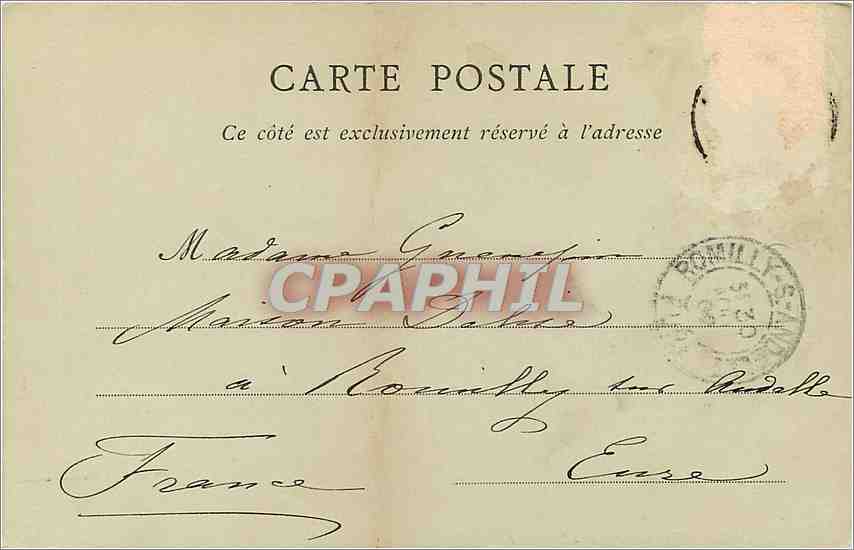 CARTE POSTALE
Ce côté est exclusivement réservé à l'adresse
Madame
CPAPHIL
Maison
à Romilly sur Andelle
France Eure
ROMILLY-S-AND